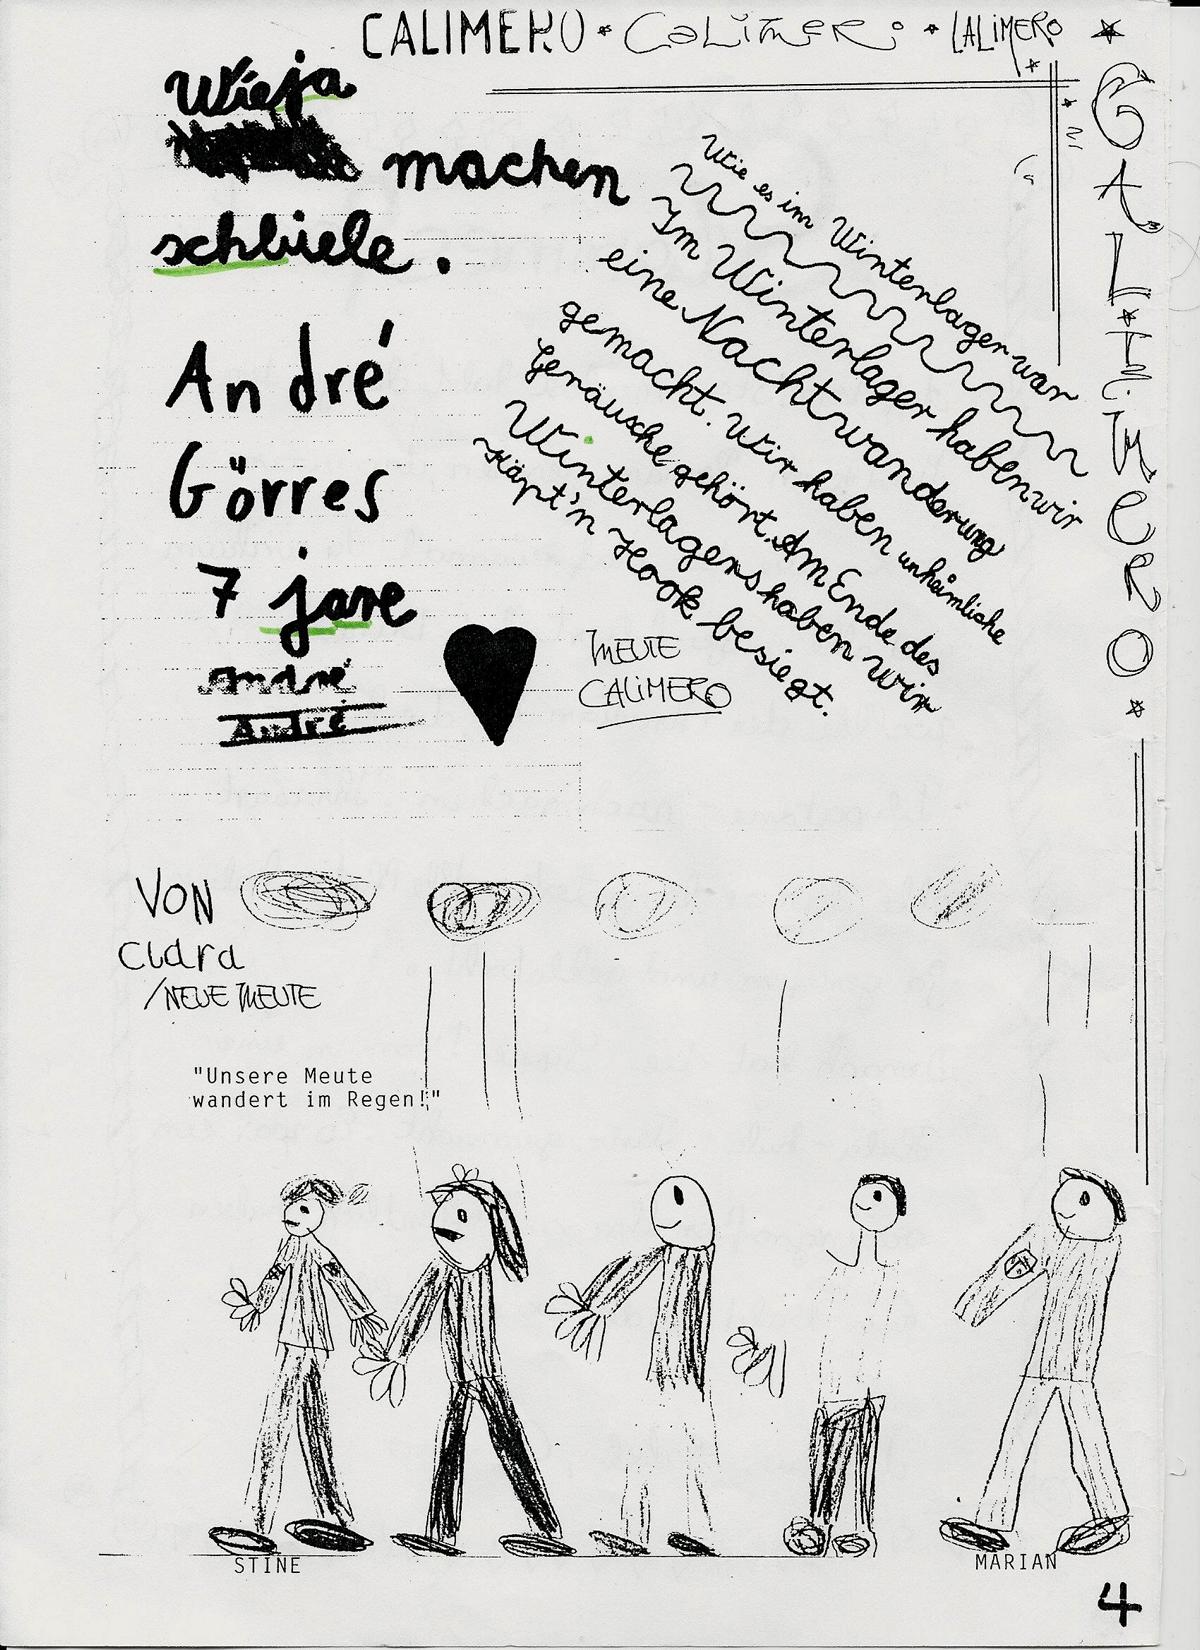 CALIMERO * CaLiMERO * CALiMERO *
CALIMERO *
Wieja
machen
schbiele.
André
Görres
7 jare
André
André
Wie es im Winterlager war
Im Winterlager haben wir
eine Nachtwanderung
gemacht. Wir haben unheimliche
Geräusche gehört. Am Ende des
Winterlagers haben wir
Käpt'n Hook besiegt.
MEUTE
CALiMERO
VON
Clara
/NEUE MEUTE
"Unsere Meute
wandert im Regen!"
STINE
MARIAN
4